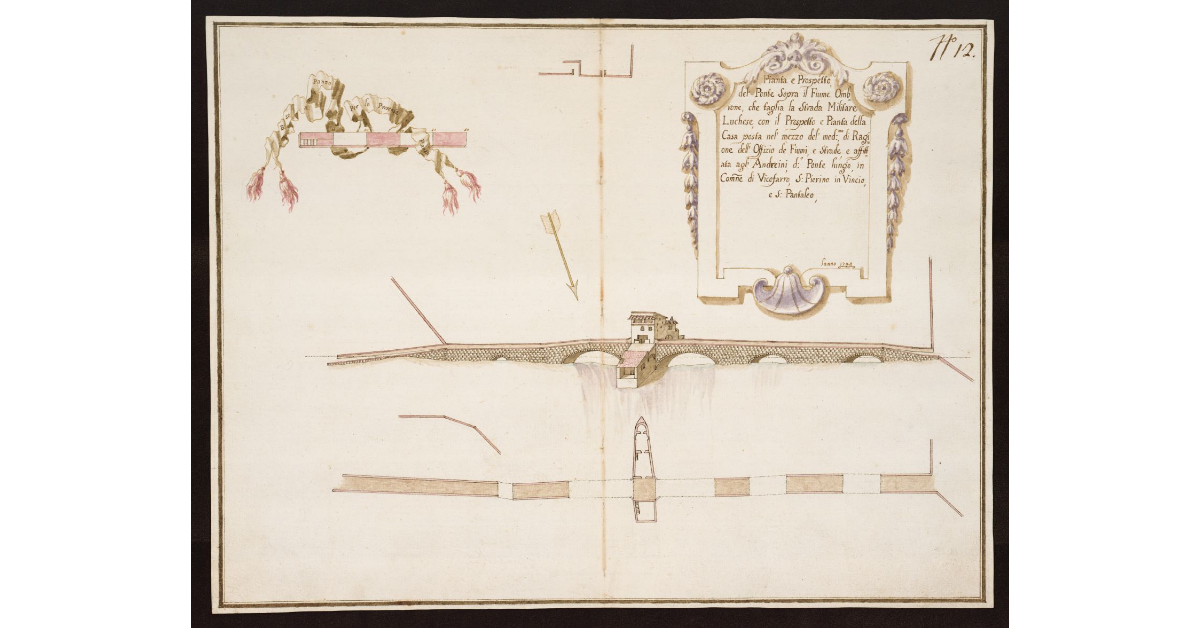 N.° 12.
Pianta e Prospetto
del Ponte Sopra il Fiume Omb
rone, che taglia la Strada Militare
Luchese, con il Prospetto e Pianta della
Casa posta nel mezzo del med.mo di Ragi
one dell' Offizio de Fiumi, e Strade, e affitt
ata agl' Andreini, d.° Ponte lungo, in
Com̃e di Vicofarro, S: Pierino in Vincio,
e S: Pantaleo,